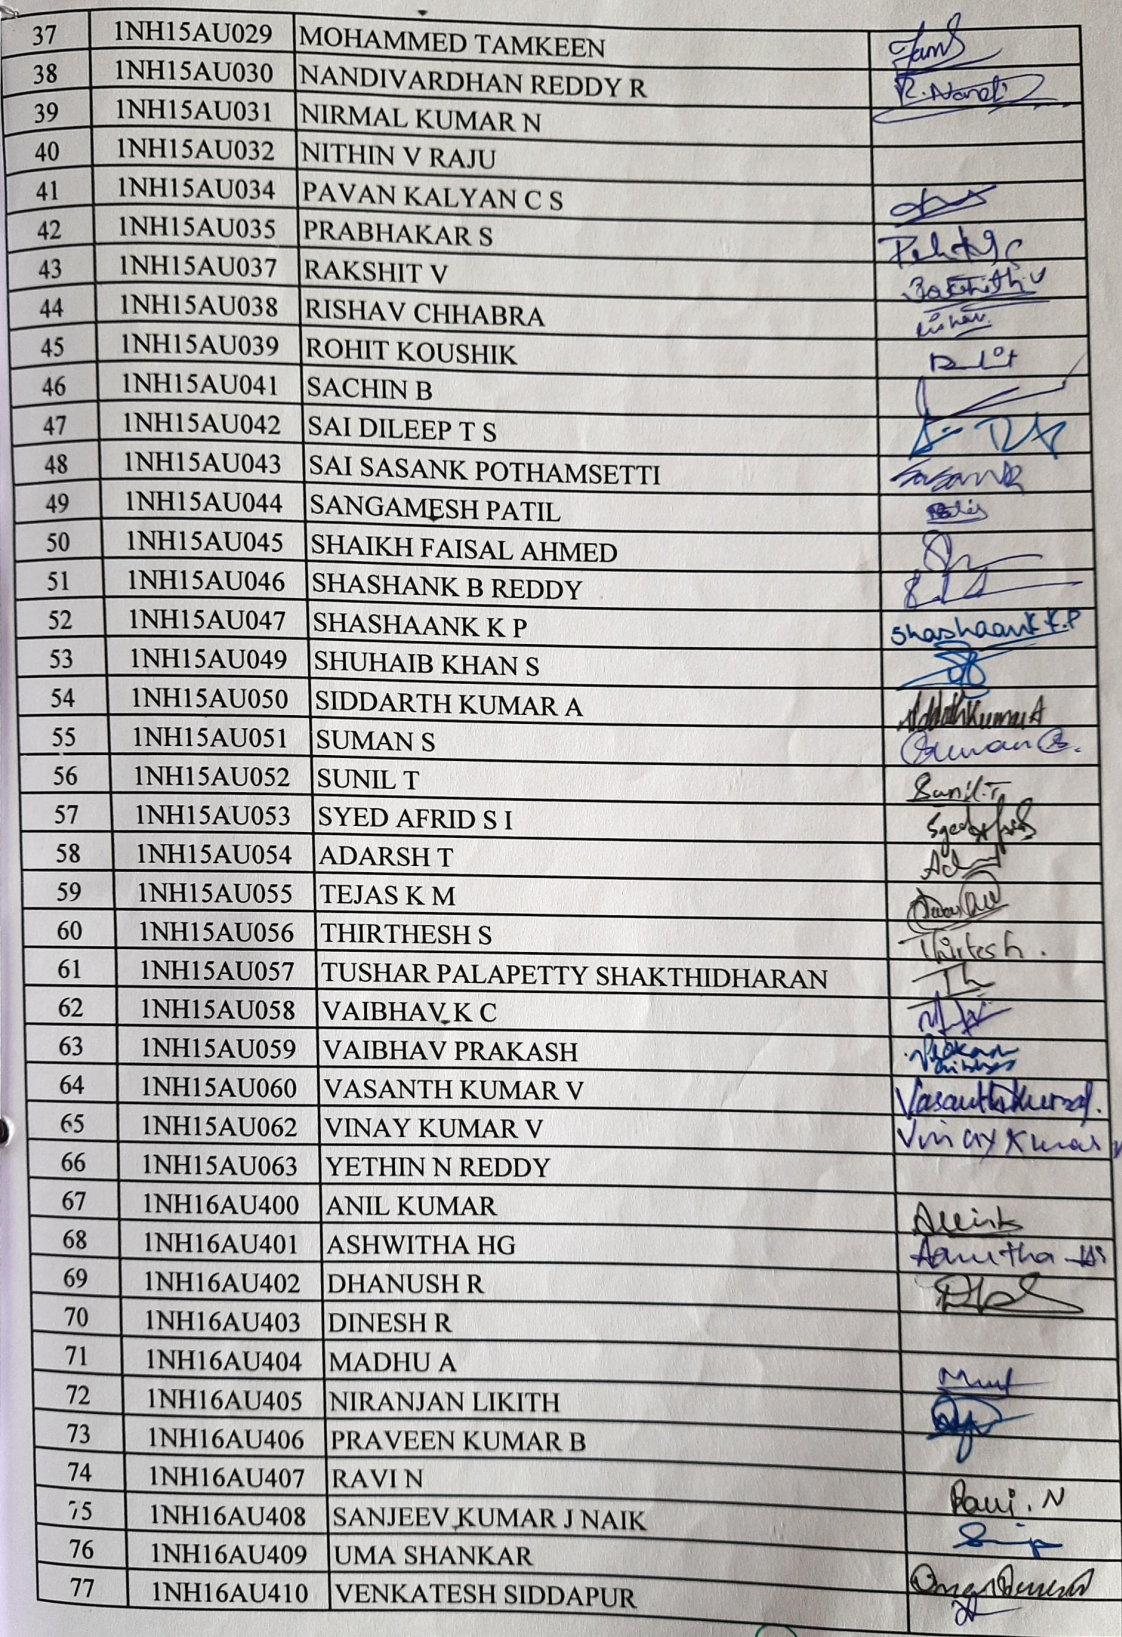 37 1NH15AU029 MOHAMMED TAMKEEN
38 1NH15AU030 NANDIVARDHAN REDDY R R. Nandi
39 1NH15AU031 NIRMAL KUMAR N
40 1NH15AU032 NITHIN V RAJU
41 1NH15AU034 PAVAN KALYAN C S
42 1NH15AU035 PRABHAKAR S
43 1NH15AU037 RAKSHIT V
44 1NH15AU038 RISHAV CHHABRA
45 1NH15AU039 ROHIT KOUSHIK
46 1NH15AU041 SACHIN B
47 1NH15AU042 SAI DILEEP T S
48 1NH15AU043 SAI SASANK POTHAMSETTI Sasank
49 1NH15AU044 SANGAMESH PATIL
50 1NH15AU045 SHAIKH FAISAL AHMED
51 1NH15AU046 SHASHANK B REDDY
52 1NH15AU047 SHASHAANK K P Shashaank K.P
53 1NH15AU049 SHUHAIB KHAN S
54 1NH15AU050 SIDDARTH KUMAR A
55 1NH15AU051 SUMAN S
56 1NH15AU052 SUNIL T Sunil.T
57 1NH15AU053 SYED AFRID S I
58 1NH15AU054 ADARSH T
59 1NH15AU055 TEJAS K M
60 1NH15AU056 THIRTHESH S
61 1NH15AU057 TUSHAR PALAPETTY SHAKTHIDHARAN
62 1NH15AU058 VAIBHAV K C
63 1NH15AU059 VAIBHAV PRAKASH
64 1NH15AU060 VASANTH KUMAR V
65 1NH15AU062 VINAY KUMAR V Vinay Kumar V
66 1NH15AU063 YETHIN N REDDY
67 1NH16AU400 ANIL KUMAR
68 1NH16AU401 ASHWITHA HG
69 1NH16AU402 DHANUSH R
70 1NH16AU403 DINESH R
71 1NH16AU404 MADHU A
72 1NH16AU405 NIRANJAN LIKITH
73 1NH16AU406 PRAVEEN KUMAR B
74 1NH16AU407 RAVI N Ravi. N
75 1NH16AU408 SANJEEV KUMAR J NAIK
76 1NH16AU409 UMA SHANKAR
77 1NH16AU410 VENKATESH SIDDAPUR